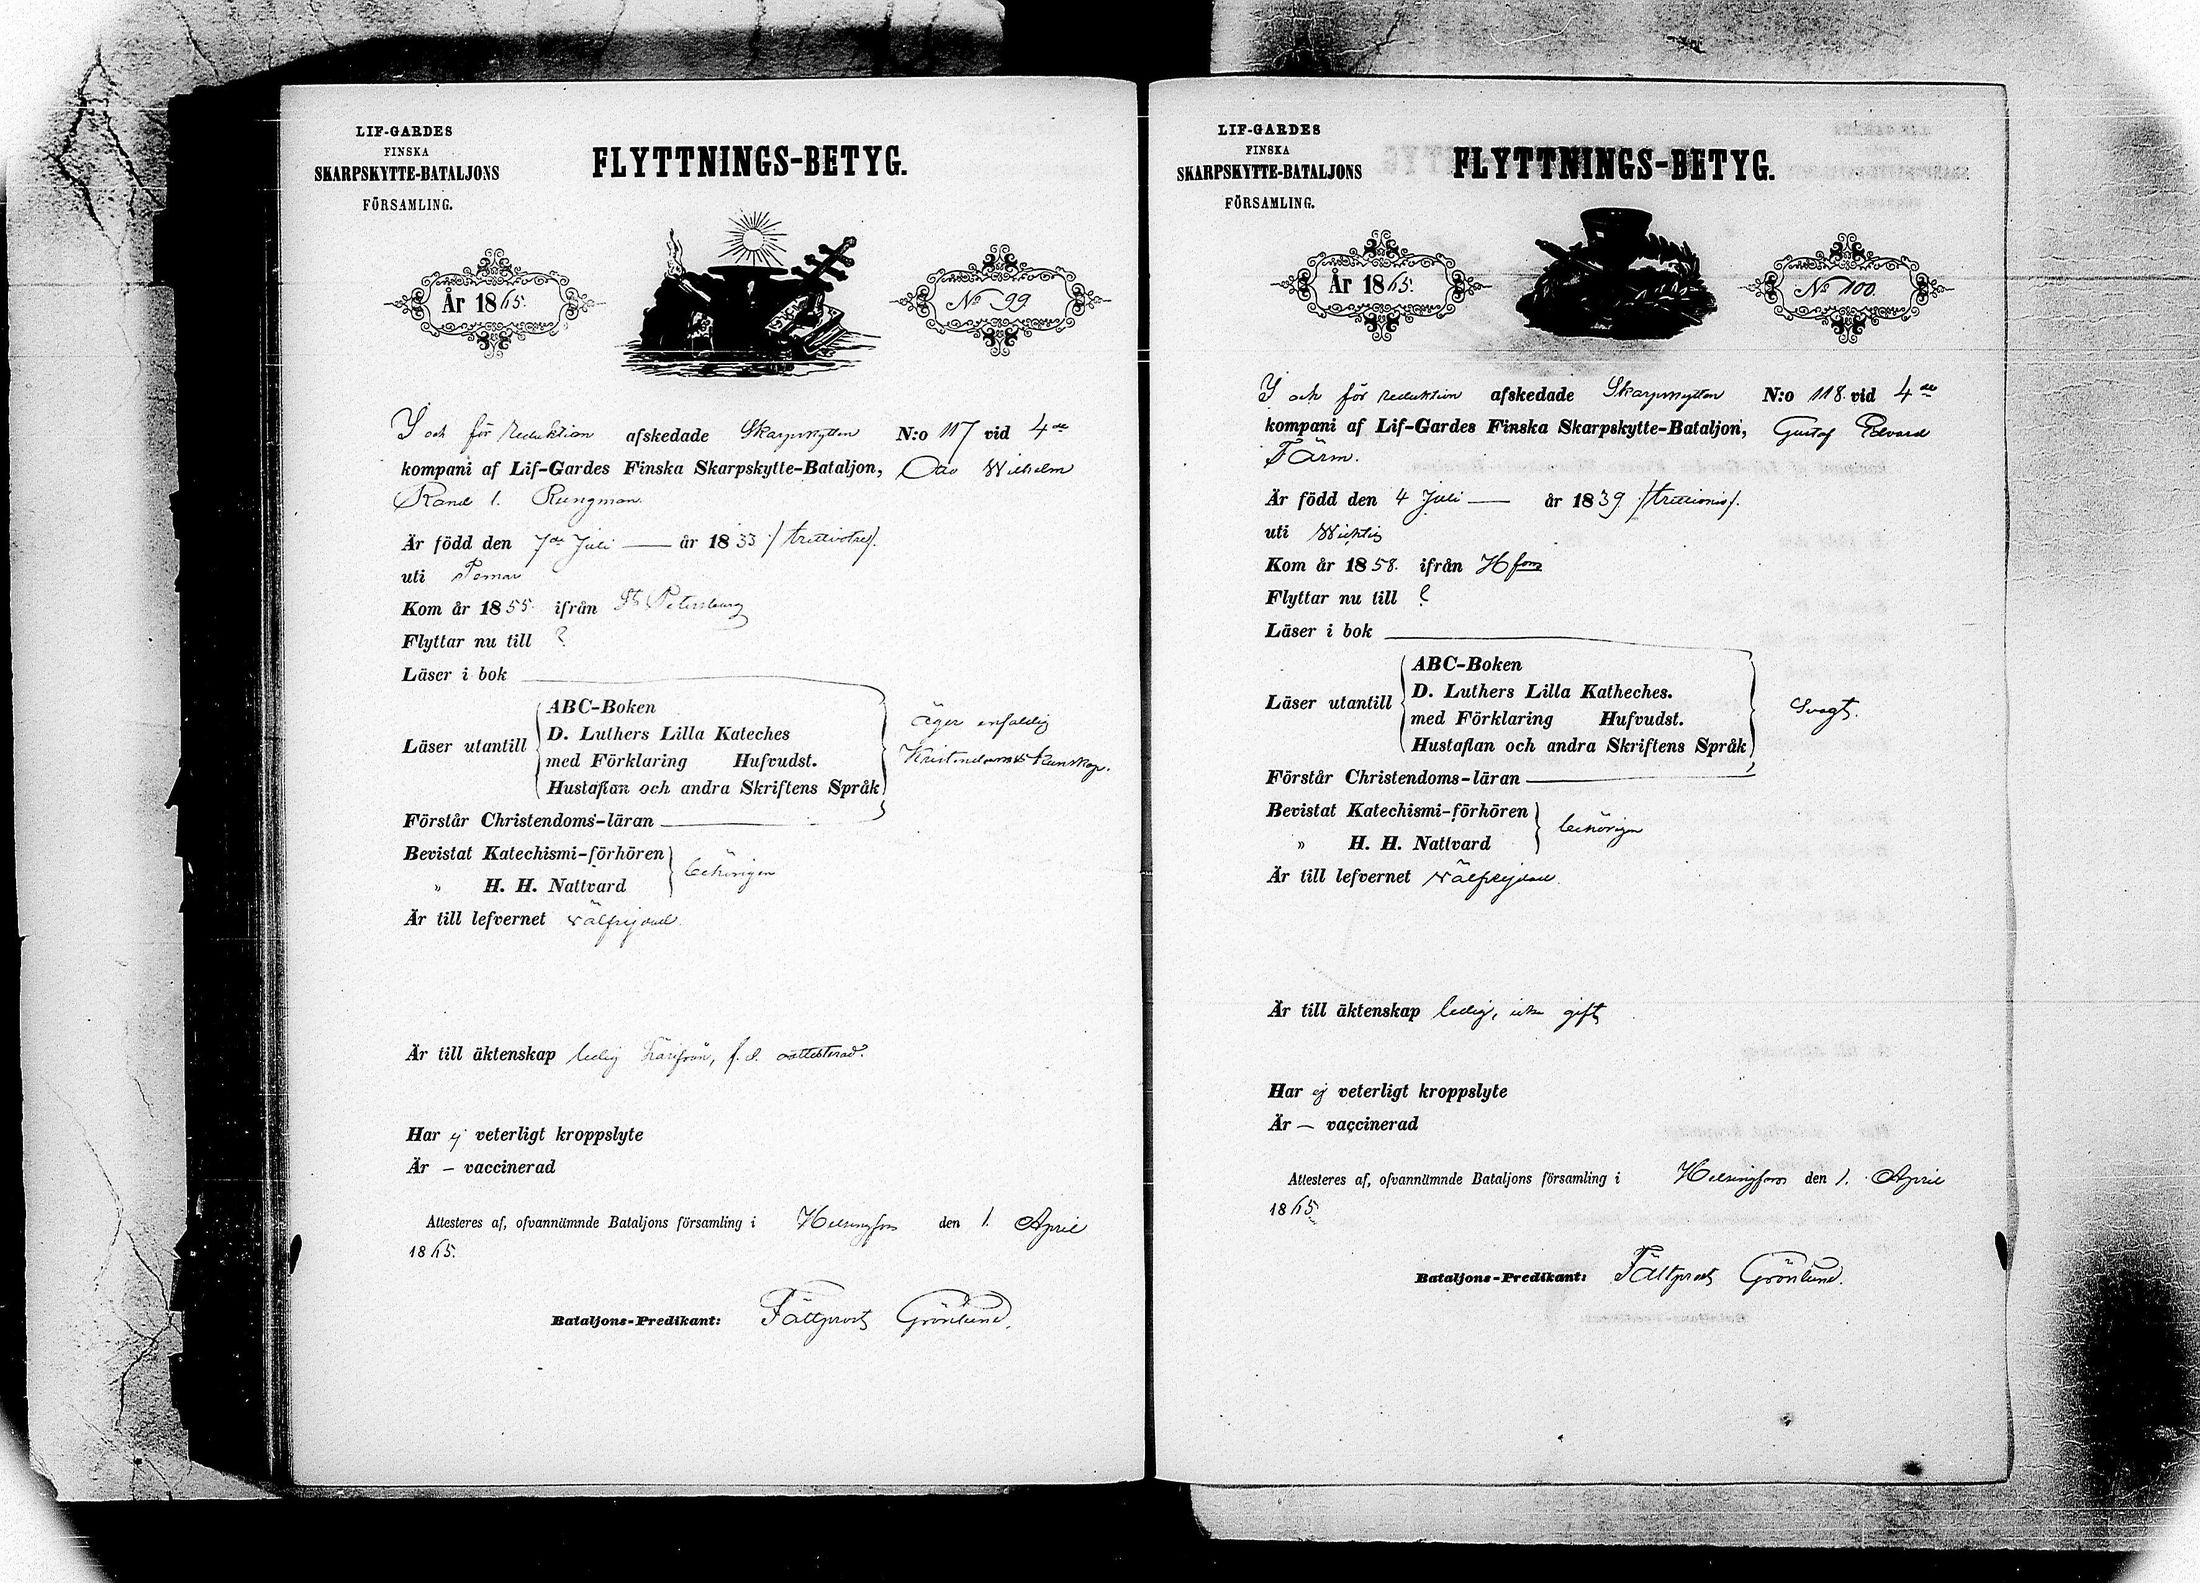 LIF-GARDES
FINSKA
SKARPSKYTTE-BATALJONS
FÖRSAMLING.
FLYTTNINGS-BETYG.
År 1865.
No 99
I och för Reduktion afskedade Skarpskytten N:o 117 vid 4de
kompani af Lif-Gardes Finska Skarpskytte-Bataljon, Otto Wilhelm
Rand l. Rungman.
Är född den 7de Juli — år 1833 /trettiotre/.
uti Pemar
Kom år 1855 ifrån St Petersburg
Flyttar nu till ?
Läser i bok
Läser utantill
ABC-Boken
D. Luthers Lilla Kateches
med Förklaring Hufvudst.
Hustaflan och andra Skriftens Språk
äger enfaldig
Kristendomskunskap.
Förstår Christendoms-läran
Bevistat Katechismi-förhören
„ H. H. Nattvard
behörigen
Är till lefvernet välfrejdad.
Är till äktenskap ledig härifrån, f. d.
Har ej veterligt kroppslyte
Är – vaccinerad
Attesteres af, ofvannämnde Bataljons församling i Helsingfors den 1. April
1865.
Bataljons-Predikant: Fältprost Grönlund.
LIF-GARDES
FINSKA
SKARPSKYTTE-BATALJONS
FÖRSAMLING.
FLYTTNINGS-BETYG.
År 1865.
No 100.
I och för reduktion afskedade Skarpskytten N:o 118. vid 4de
kompani af Lif-Gardes Finska Skarpskytte-Bataljon, Gustaf Edvard
Färm.
Är född den 4 Juli — år 1839 /trettionio/.
uti Wichtis
Kom år 1858. ifrån Hfors
Flyttar nu till ?
Läser i bok
Läser utantill
ABC-Boken
D. Luthers Lilla Katheches.
med Förklaring Hufvudst.
Hustaflan och andra Skriftens Språk
Svagt.
Förstår Christendoms-läran
Bevistat Katechismi-förhören
„ H. H. Nattvard
behörigen
Är till lefvernet välfrejdad.
Är till äktenskap ledig, icke gift
Har ej veterligt kroppslyte
Är – vaccinerad
Attesteres af, ofvannämnde Bataljons församling i Helsingfors den 1. April
1865.
Bataljons-Predikant: Fältprost Grönlund.